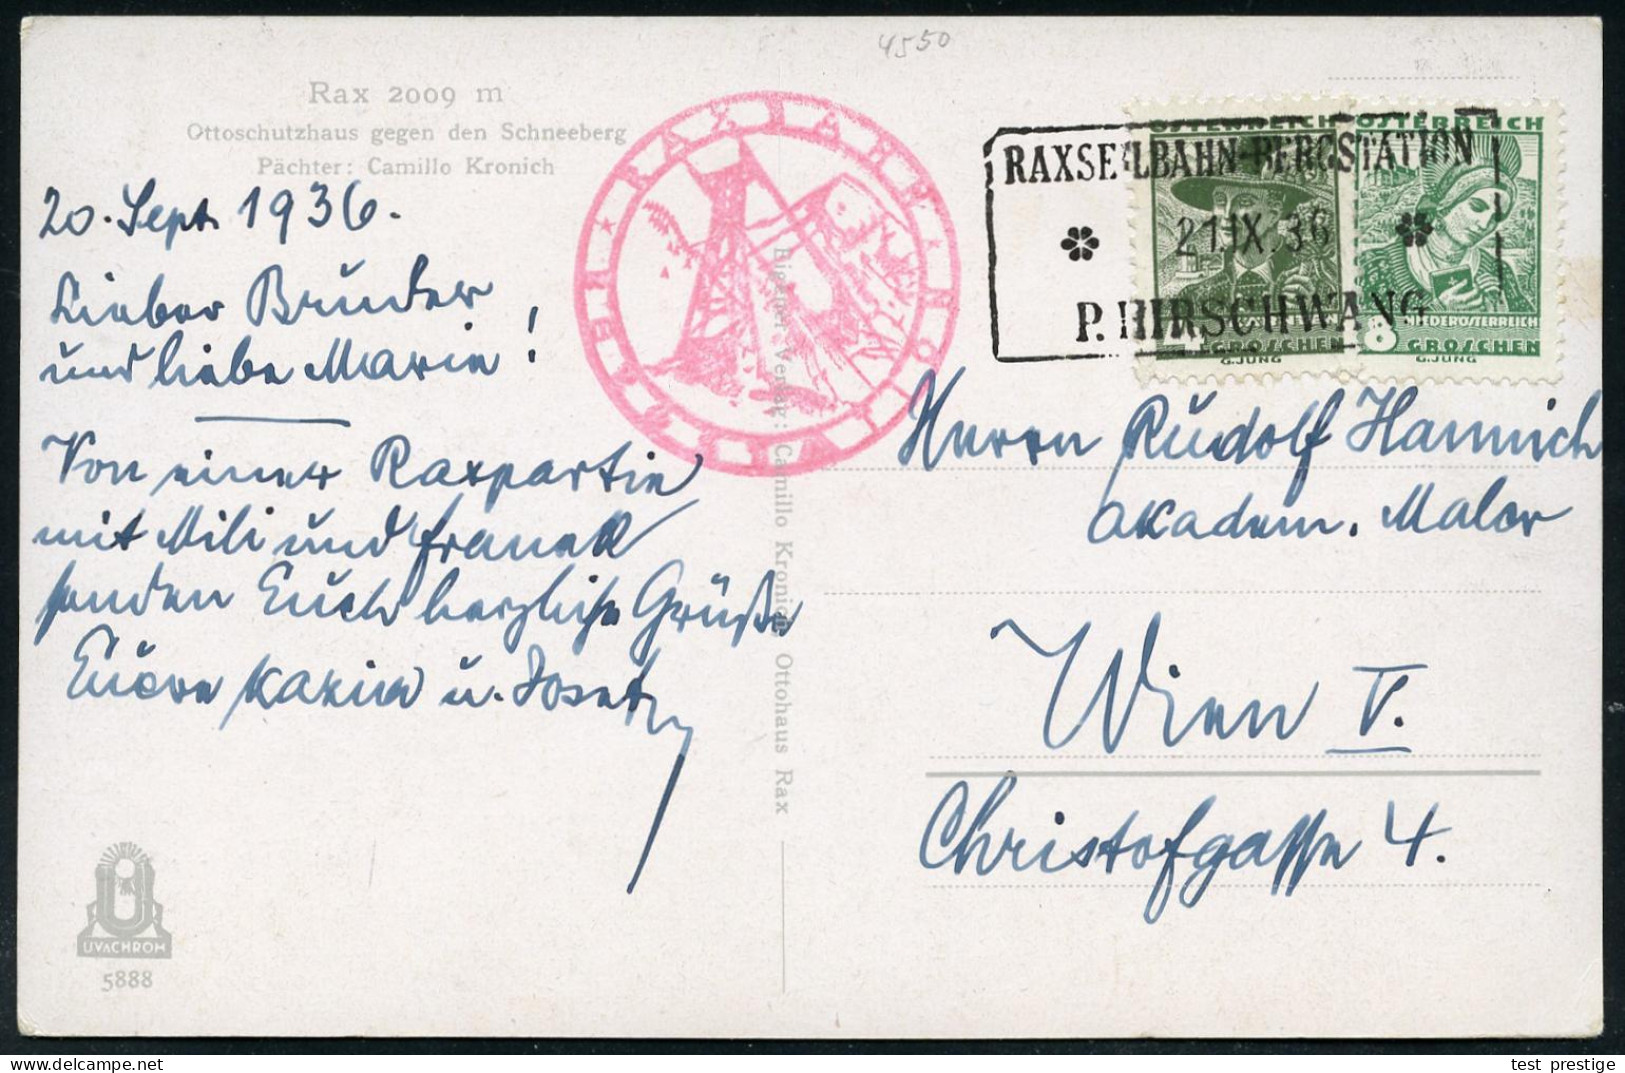 4550
Rax 2009 m
Ottoschutzhaus gegen den Schneeberg
Pächter: Camillo Kronich
20. Sept. 1936.
Lieber Bruder
und liebe Marie!
Von einer Raxpartie
mit Mili und Franzl
senden Euch herzliche Grüße
Eure u. Josef
UVACHROM
5888
Eigener Verlag: Camillo Kronich, Ottohaus Rax
RAXSEILBAHN-BERGSTATION
21 IX 36
P. HIRSCHWANG
ÖSTERREICH
GROSCHEN
G.JUNG
ÖSTERREICH
NIEDERÖSTERREICH
8 GROSCHEN
G.JUNG
Herrn Rudolf Hannich
akadem. Maler
Wien V.
Christofgasse 4.
test prestige